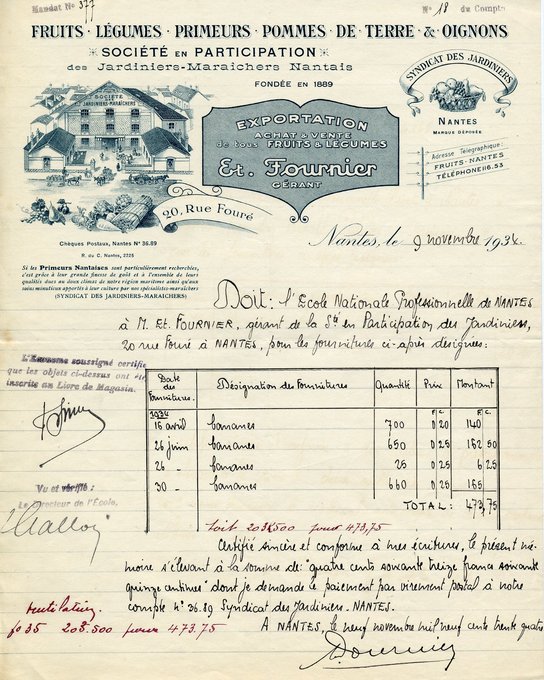 Mandat No 377
No 18 du Compte
FRUITS · LÉGUMES · PRIMEURS · POMMES · DE TERRE · & OIGNONS
SOCIÉTÉ EN PARTICIPATION
des Jardiniers-Maraichers Nantais
FONDÉE EN 1889
SYNDICAT DES JARDINIERS
NANTES
MARQUE DÉPOSÉE
SOCIÉTÉ
JARDINIERS-MARAICHERS
EXPORTATION
ACHAT & VENTE
de tous FRUITS & LÉGUMES
Et. Fournier
GÉRANT
Adresse Télégraphique:
FRUITS-NANTES
TÉLÉPHONE 116.53
20, Rue Fouré
Chèques Postaux, Nantes No 36.89
R. du C. Nantes, 2225
Nantes, le 9 novembre 1934.
Si les Primeurs Nantaises sont particulièrement recherchées,
c'est grâce à leur grande finesse de goût et à l'ensemble de leurs
qualités dues au doux climat de notre région maritime ainsi qu'aux
soins minutieux apportés à leur culture par nos spécialistes-maraichers
(SYNDICAT DES JARDINIERS-MARAICHERS)
Doit: l'Ecole Nationale Professionnelle de NANTES
à M. Et. FOURNIER, gérant de la Sté en Participation des Jardiniers,
20 rue Fouré à NANTES, pour les fournitures ci-après désignées:
L'Econome soussigné certifie
que les objets ci-dessus ont été
inscrits au Livre de Magasin.
Date des Fournitures. Désignation des Fournitures Quantité Prix Montant
F. C. F. C.
1934
16 avril bananes 700 0 20 140
26 juin bananes 650 0 25 162 50
26 - bananes 25 0 25 6 25
30 - bananes 660 0 25 165
TOTAL: 473,75
Vu et vérifié:
Le Directeur de l'École,
Soit 203K500 pour 473,75
Certifié sincère et conforme à mes écritures, le présent mé-
moire s'élevant à la somme de: "quatre cents soixante treize francs soixante
quinze centimes" dont je demande le paiement par virement postal à notre
compte No 36.89 Syndicat des Jardiniers. NANTES.
fo 35 203.500 pour 473.75
A NANTES, le neuf novembre mil neuf cents trente quatre